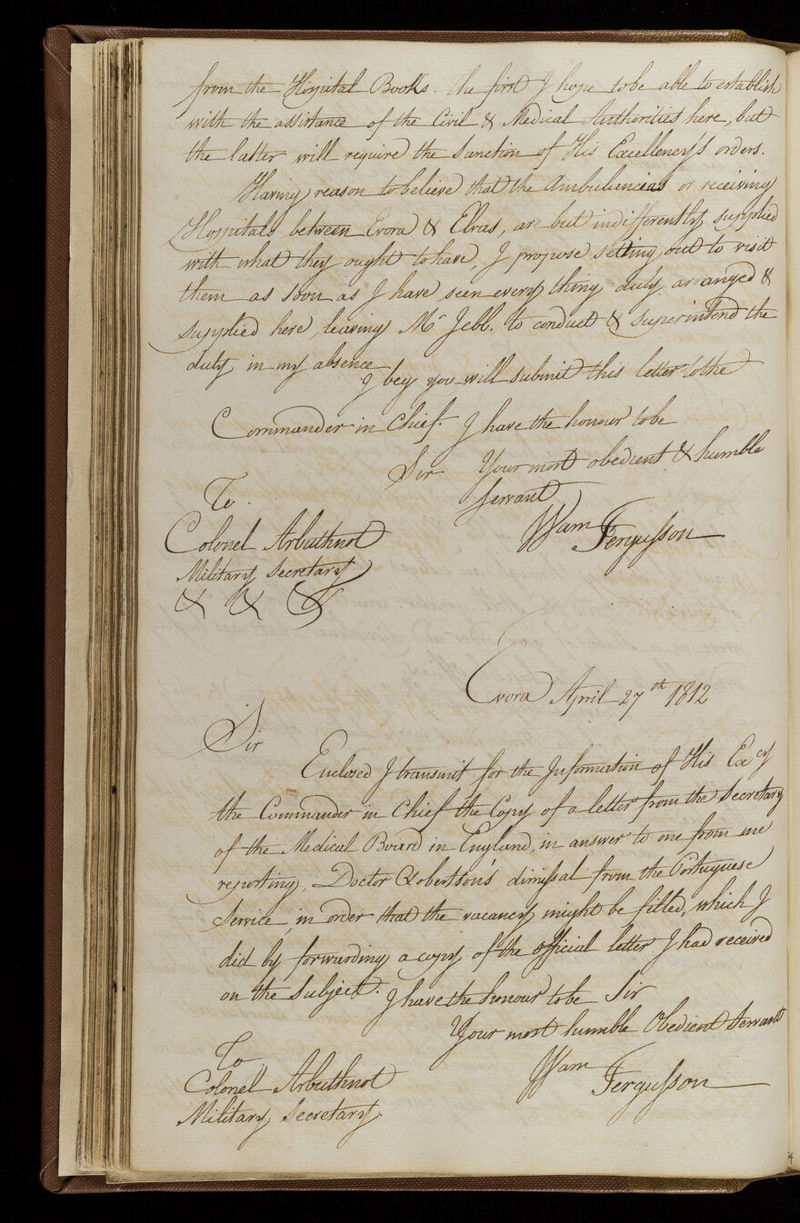 from the Hospital Books. The first I hope to be able to establish
with the assistance of the Civil & Medical Authorities here, but
the latter will require the Sanction of His Excellency's orders.
Having reason to believe that the Ambulancias or receiving
Hospitals between Evora & Elvas, are but indifferently supplied
with what they ought to have, I propose setting out to visit
them as soon as I have seen every thing duly arranged &
supplied here, leaving Mr Jebb. to conduct & Superintend the
duty in my absence
I beg you will submit this letter to the
Commander in Chief. I have the honour to be
Sir Your most obedient & humble
Servant
To
Wam Fergusson
Colonel Arbuthnot
Military Secretary
& & &
Evora April 27th 1812
Sir
Enclosed I transmit for the Information of His Excy
the Commander in Chief the Copy of a letter from the Secretary
of the Medical Board in England, in answer to one from me
reporting, Doctor Robertson's dimissal from the Portuguese
Service, in order that the vacancy might be filled, which I
did by forwarding a copy of the official letter I had received
on the Subject. I have the honour to be Sir
Your most humble Obedient Servant
To
Wam Fergusson
Colonell Arbuthnot
Military Secretary.